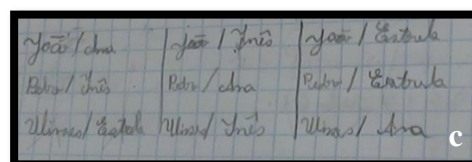 João / Ana | João / Inês | João / Estrela
Pedro / Inês | Pedro / Ana | Pedro / Estrela
Ulisses / Estrela | Ulisses / Inês | Ulisses / Ana
c